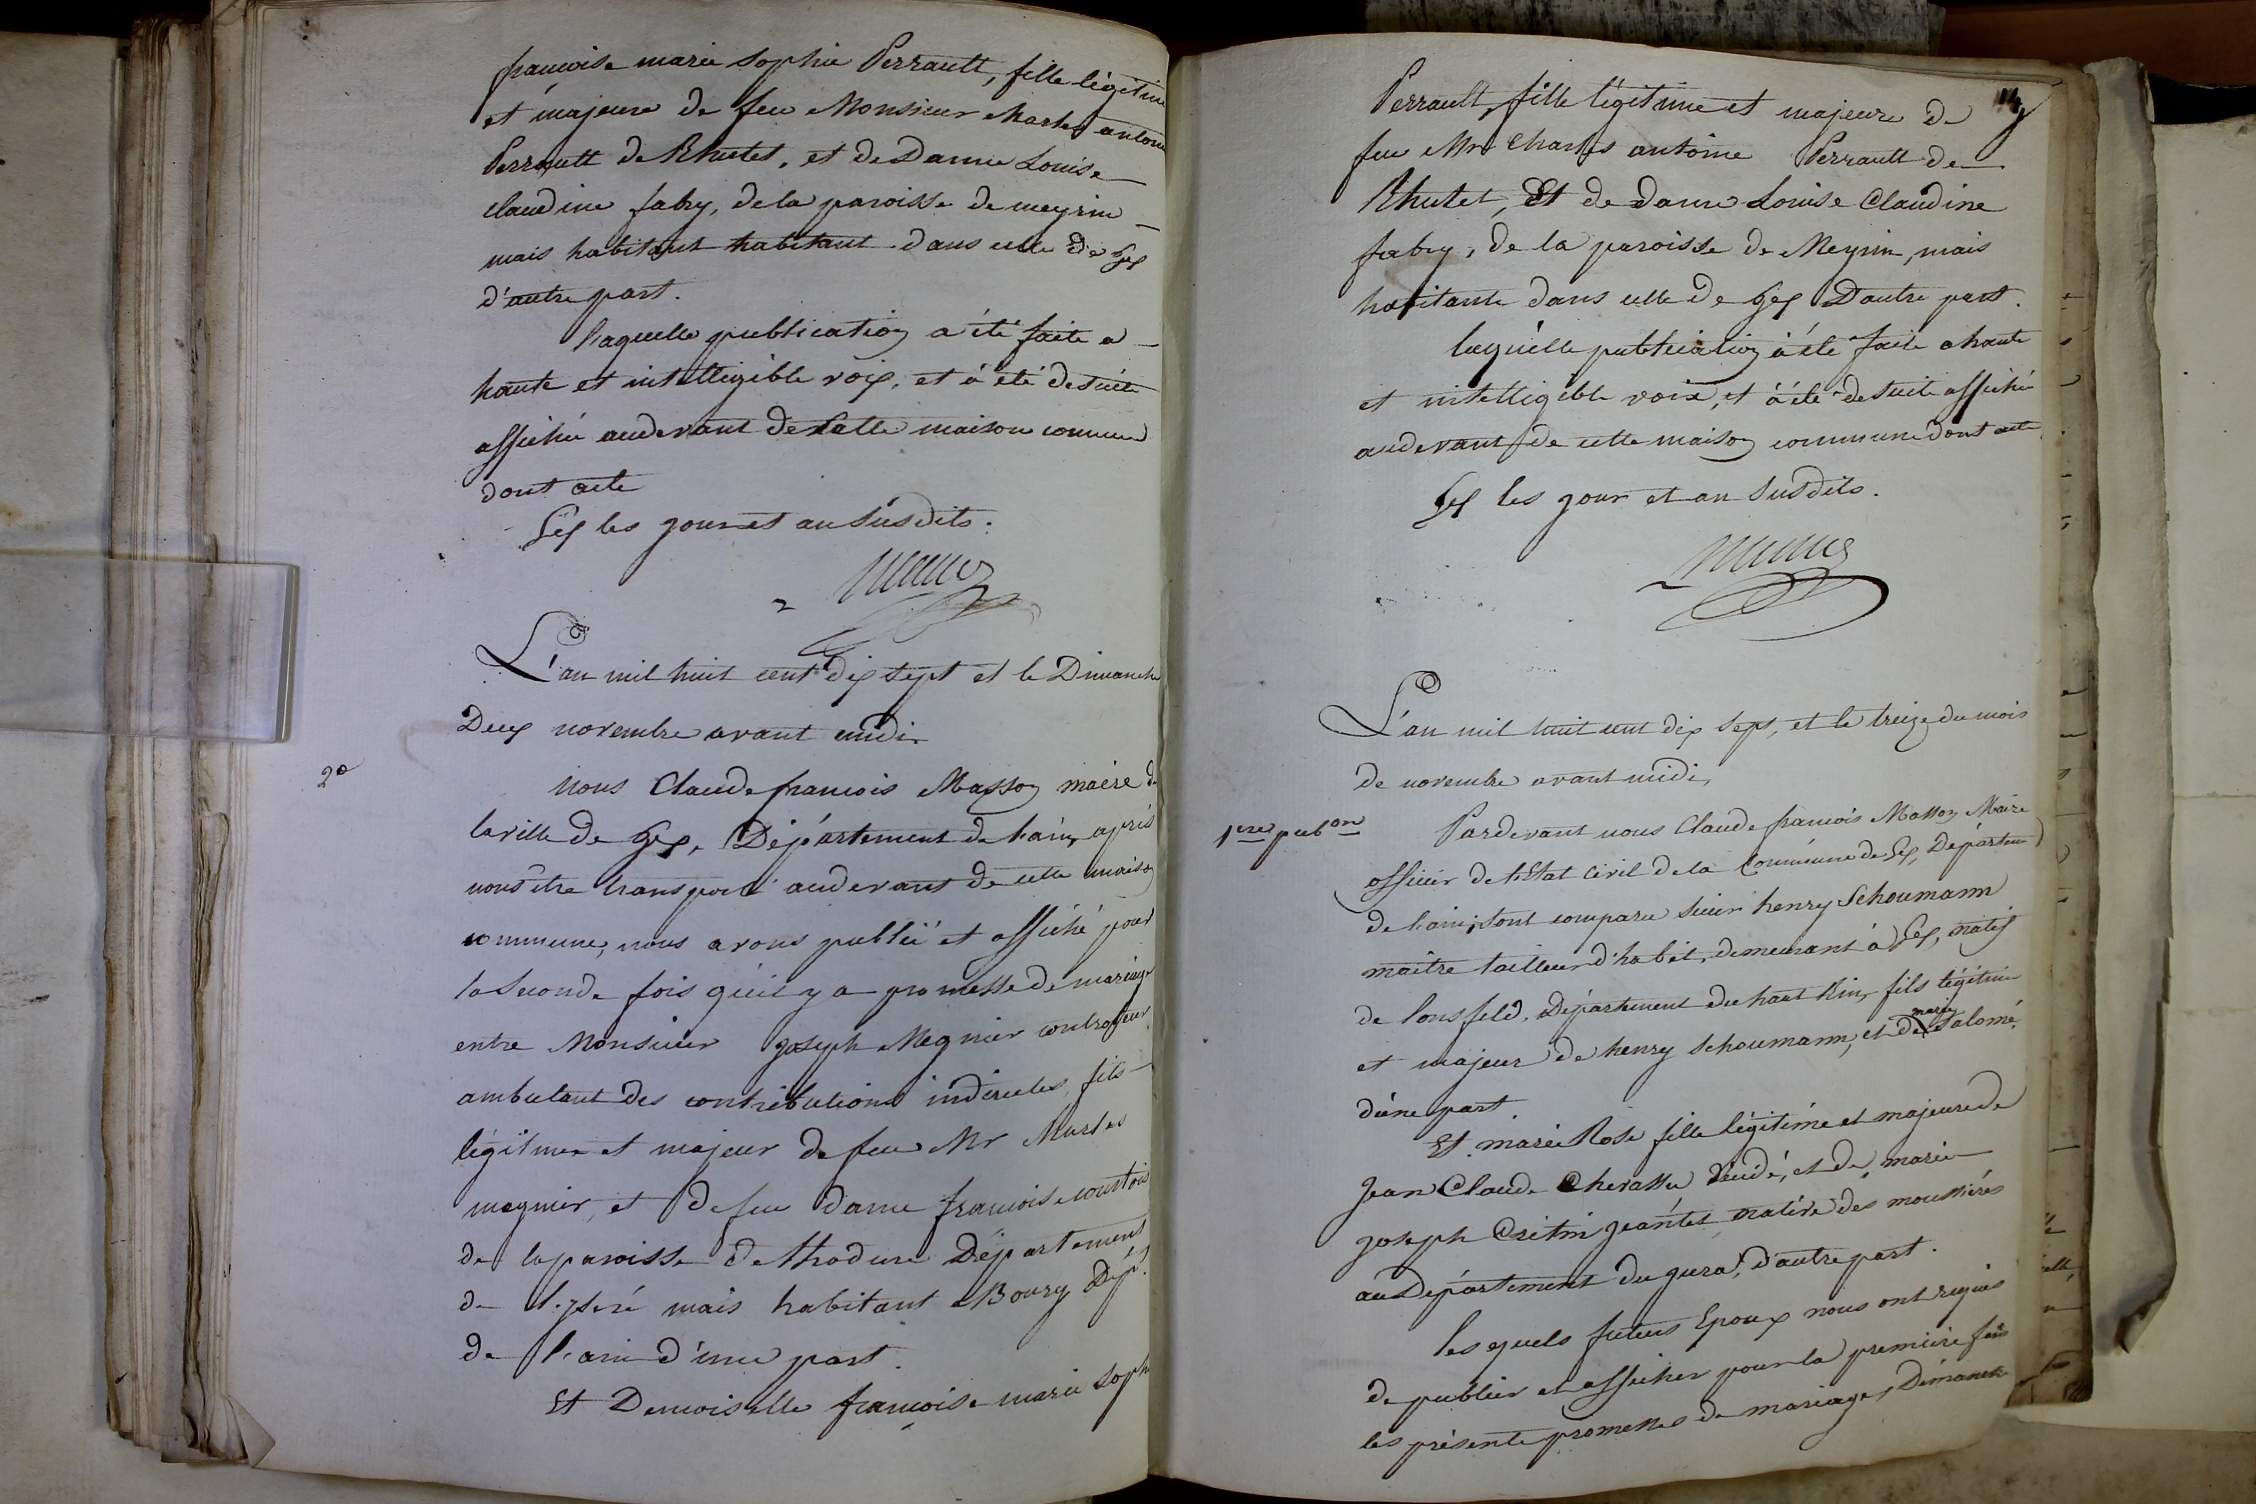 françoise marie Sophie Perrault, fille légitime
et majeure de feu Monsieur charles antoine
Perrault de Rhutet, et de Dame Louise
claudine fabry, de la paroisse de meyrin
mais habitant habitant dans celle de Gex
d'autre part.
laquelle publication a été faite a
haute et intelligible voix, et à été de suite
affichée audevant de cette maison commune
dont acte
Gex les jour et an susdits.
L'an mil huit cent dix sept et le Dimanche
Deux novembre avant midi.
2e
Nous Claude françois Masson maire de
la ville de Gex, Département de l'ain, après
nous être transporté audevant de cette maison
commune, nous avons publié et affiché pour
la seconde fois qu'il y a promesse de mariage
entre Monsieur joseph Megnier controleur
ambulant des contributions indirectes, fils
légitime et majeur de feu Mr
megnier, et de feu dame françoise courtois
de la paroisse de Département
de l'yseré mais habitant a Bourg Dépt
de l'ain d'une part.
Et Demoiselle françoise marie Soph
114
Perrault, fille légitime et majeure de
feu Mr Charles antoine Perrault de
Rhutet, Et de dame Louise Claudine
fabry, de la paroisse de Meyrin, mais
habitante dans celle de Gex D'autre part.
laquelle publication à été faite a haute
et intelligible voix, et à été de suite affiché
audevant de cette maison commune dont acte
Gex les jour et an susdits.
L'an mil huit cent dix sept, et le treize du mois
de novembre avant midi,
1ere pubon
Pardevant nous Claude françois Masson Maire
officier de l'Etat Civil de la Commune de Gex, Départem
de l'ain; sont comparu sieur henry Schoumann
maître tailleur d'habit, demeurant à Gex, natif
de Ponsfeld, Département du haut Rin, fils légitime
et majeur de henry Schoumann, et de marie Salomé,
d'une part.
Et marie Rose fille légitime et majeure de
Jean Claude Chevassu décédé, et de marie
joseph native des moussières
au Département du jura, d'autre part.
lesquels futurs Epoux nous ont requis
de publier et afficher pour la première fois
les présente promesses de mariage, Dimanche